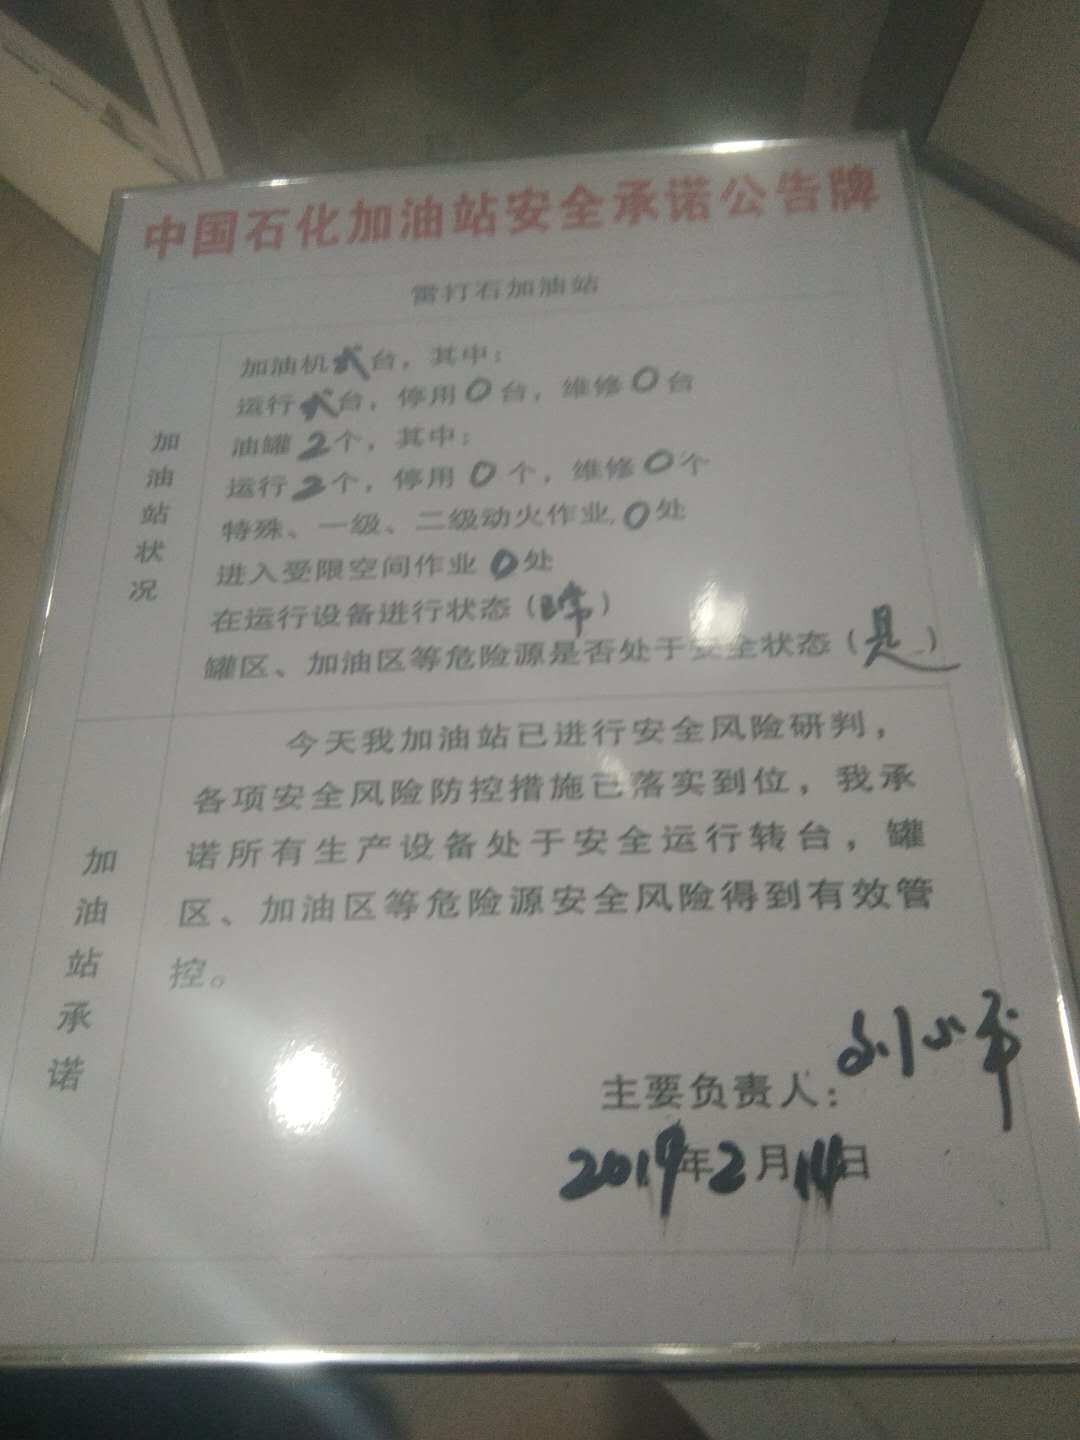 中国石化加油站安全承诺公告牌
雷打石加油站
加油站状况
加油机弍台，其中：
运行弍台，停用0台，维修0台
油罐2个，其中：
运行2个，停用0个，维修0个
特殊、一级、二级动火作业0处
进入受限空间作业0处
在运行设备进行状态（正常）
罐区、加油区等危险源是否处于安全状态（是）
加油站承诺
今天我加油站已进行安全风险研判，
各项安全风险防控措施已落实到位，我承
诺所有生产设备处于安全运行转台，罐
区、加油区等危险源安全风险得到有效管
控。
主要负责人：刘小平
2019年2月14日